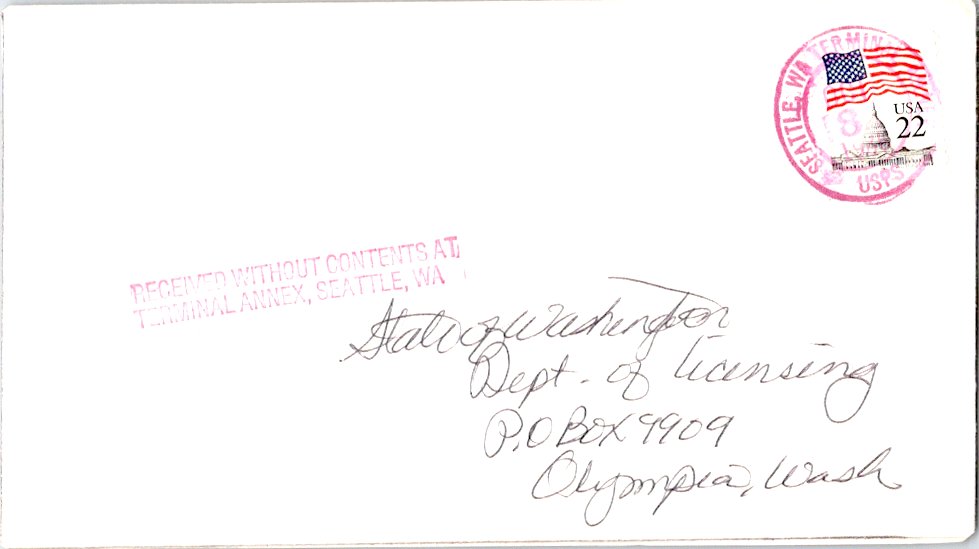 SEATTLE, WA TERMIN
8
USPS
USA
22
RECEIVED WITHOUT CONTENTS AT
TERMINAL ANNEX, SEATTLE, WA
State of Washington
Dept. of Licensing
P.O BOX 9909
Olympia, Wash